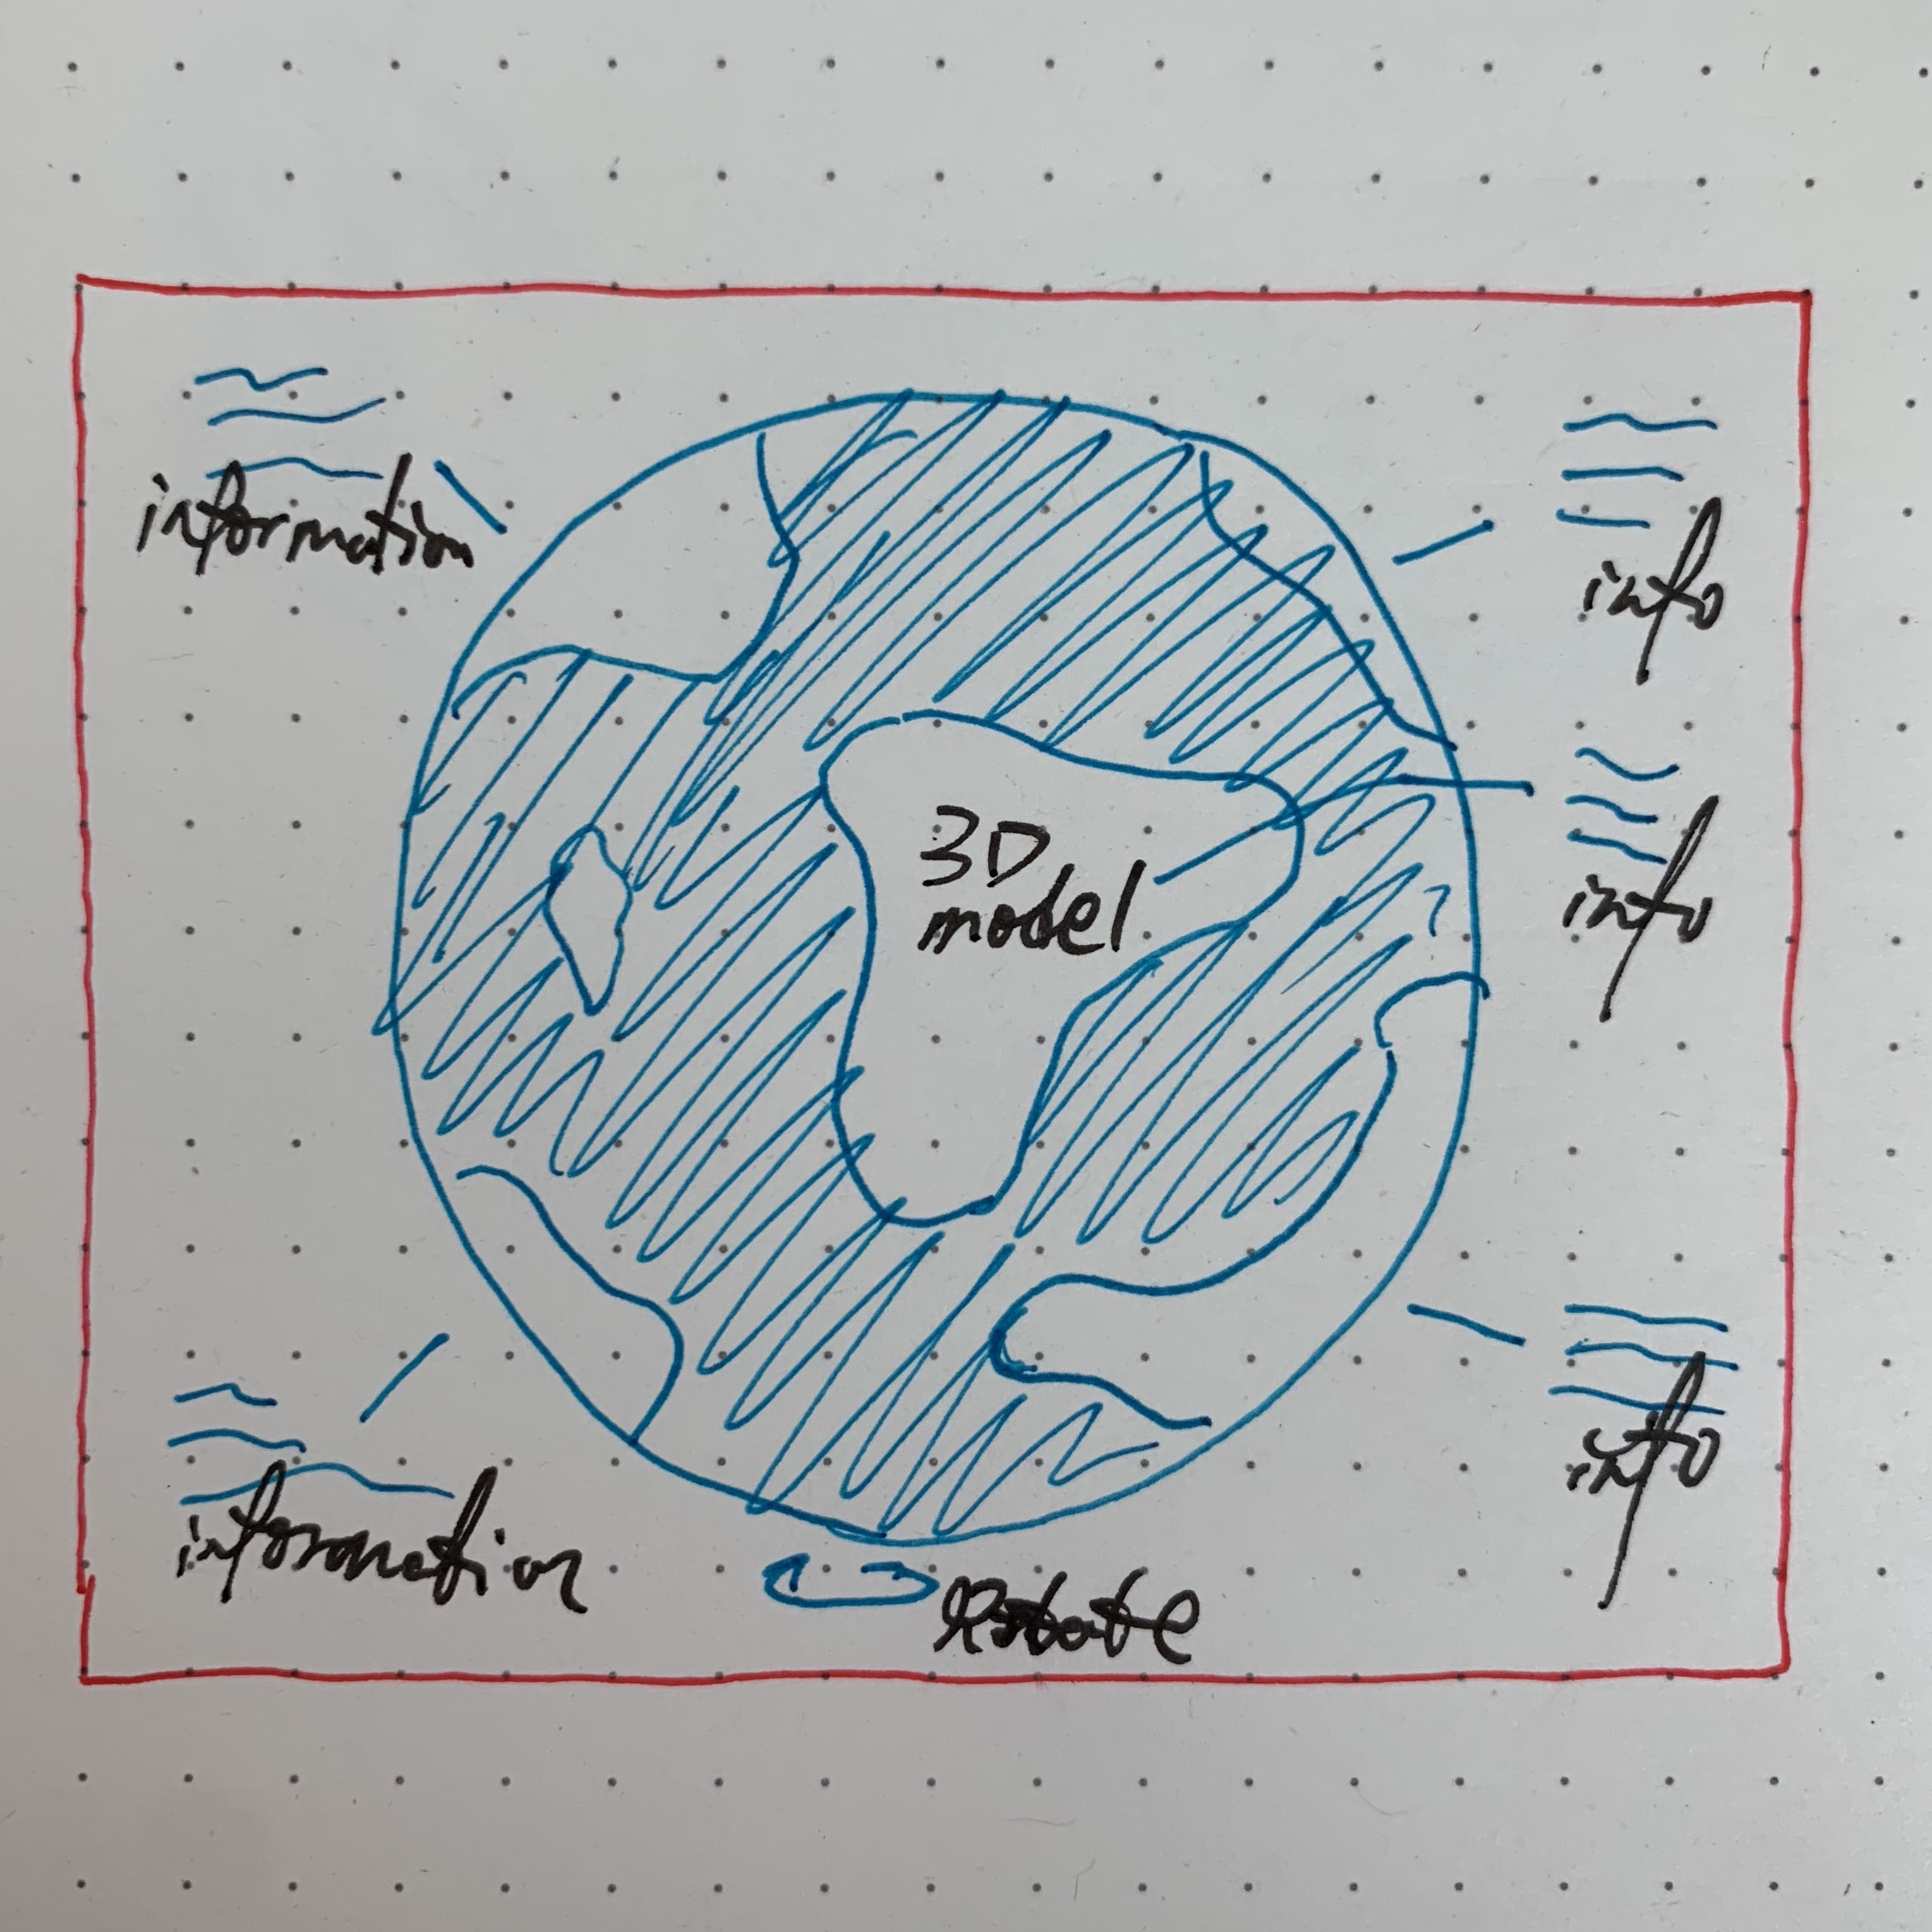 information
info
3D
model
info
info
information
Rotate